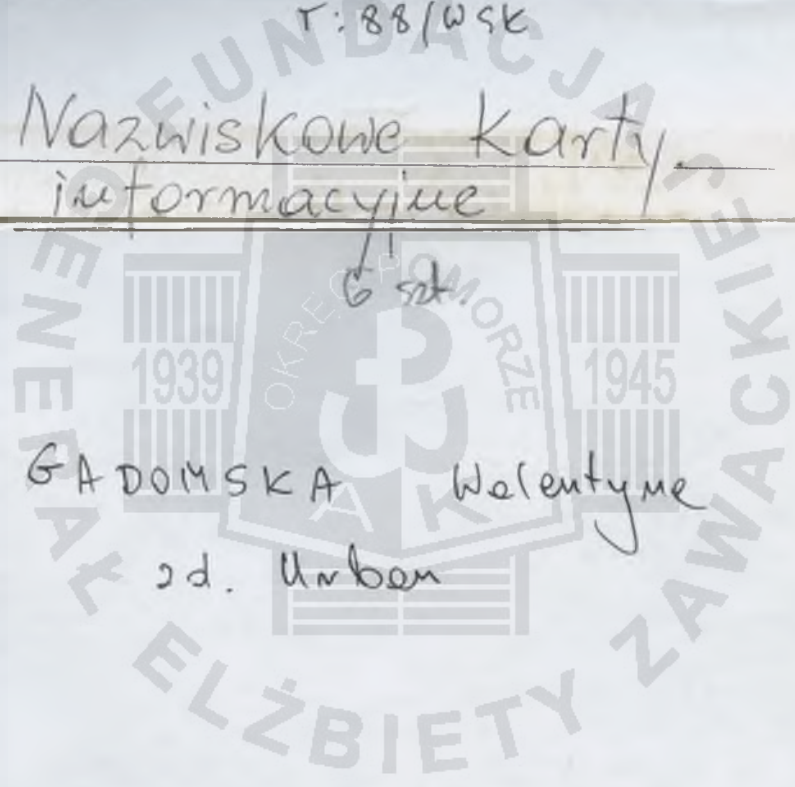 T: 88/WSK
Nazwiskowe Karty
informacyjne
6 szt.
GADOMSKA Walentyna
zd. Urban
FUNDACJA GENERAŁ ELŻBIETY ZAWACKIEJ
OKRĘG POMORZE
1939
1945
AK